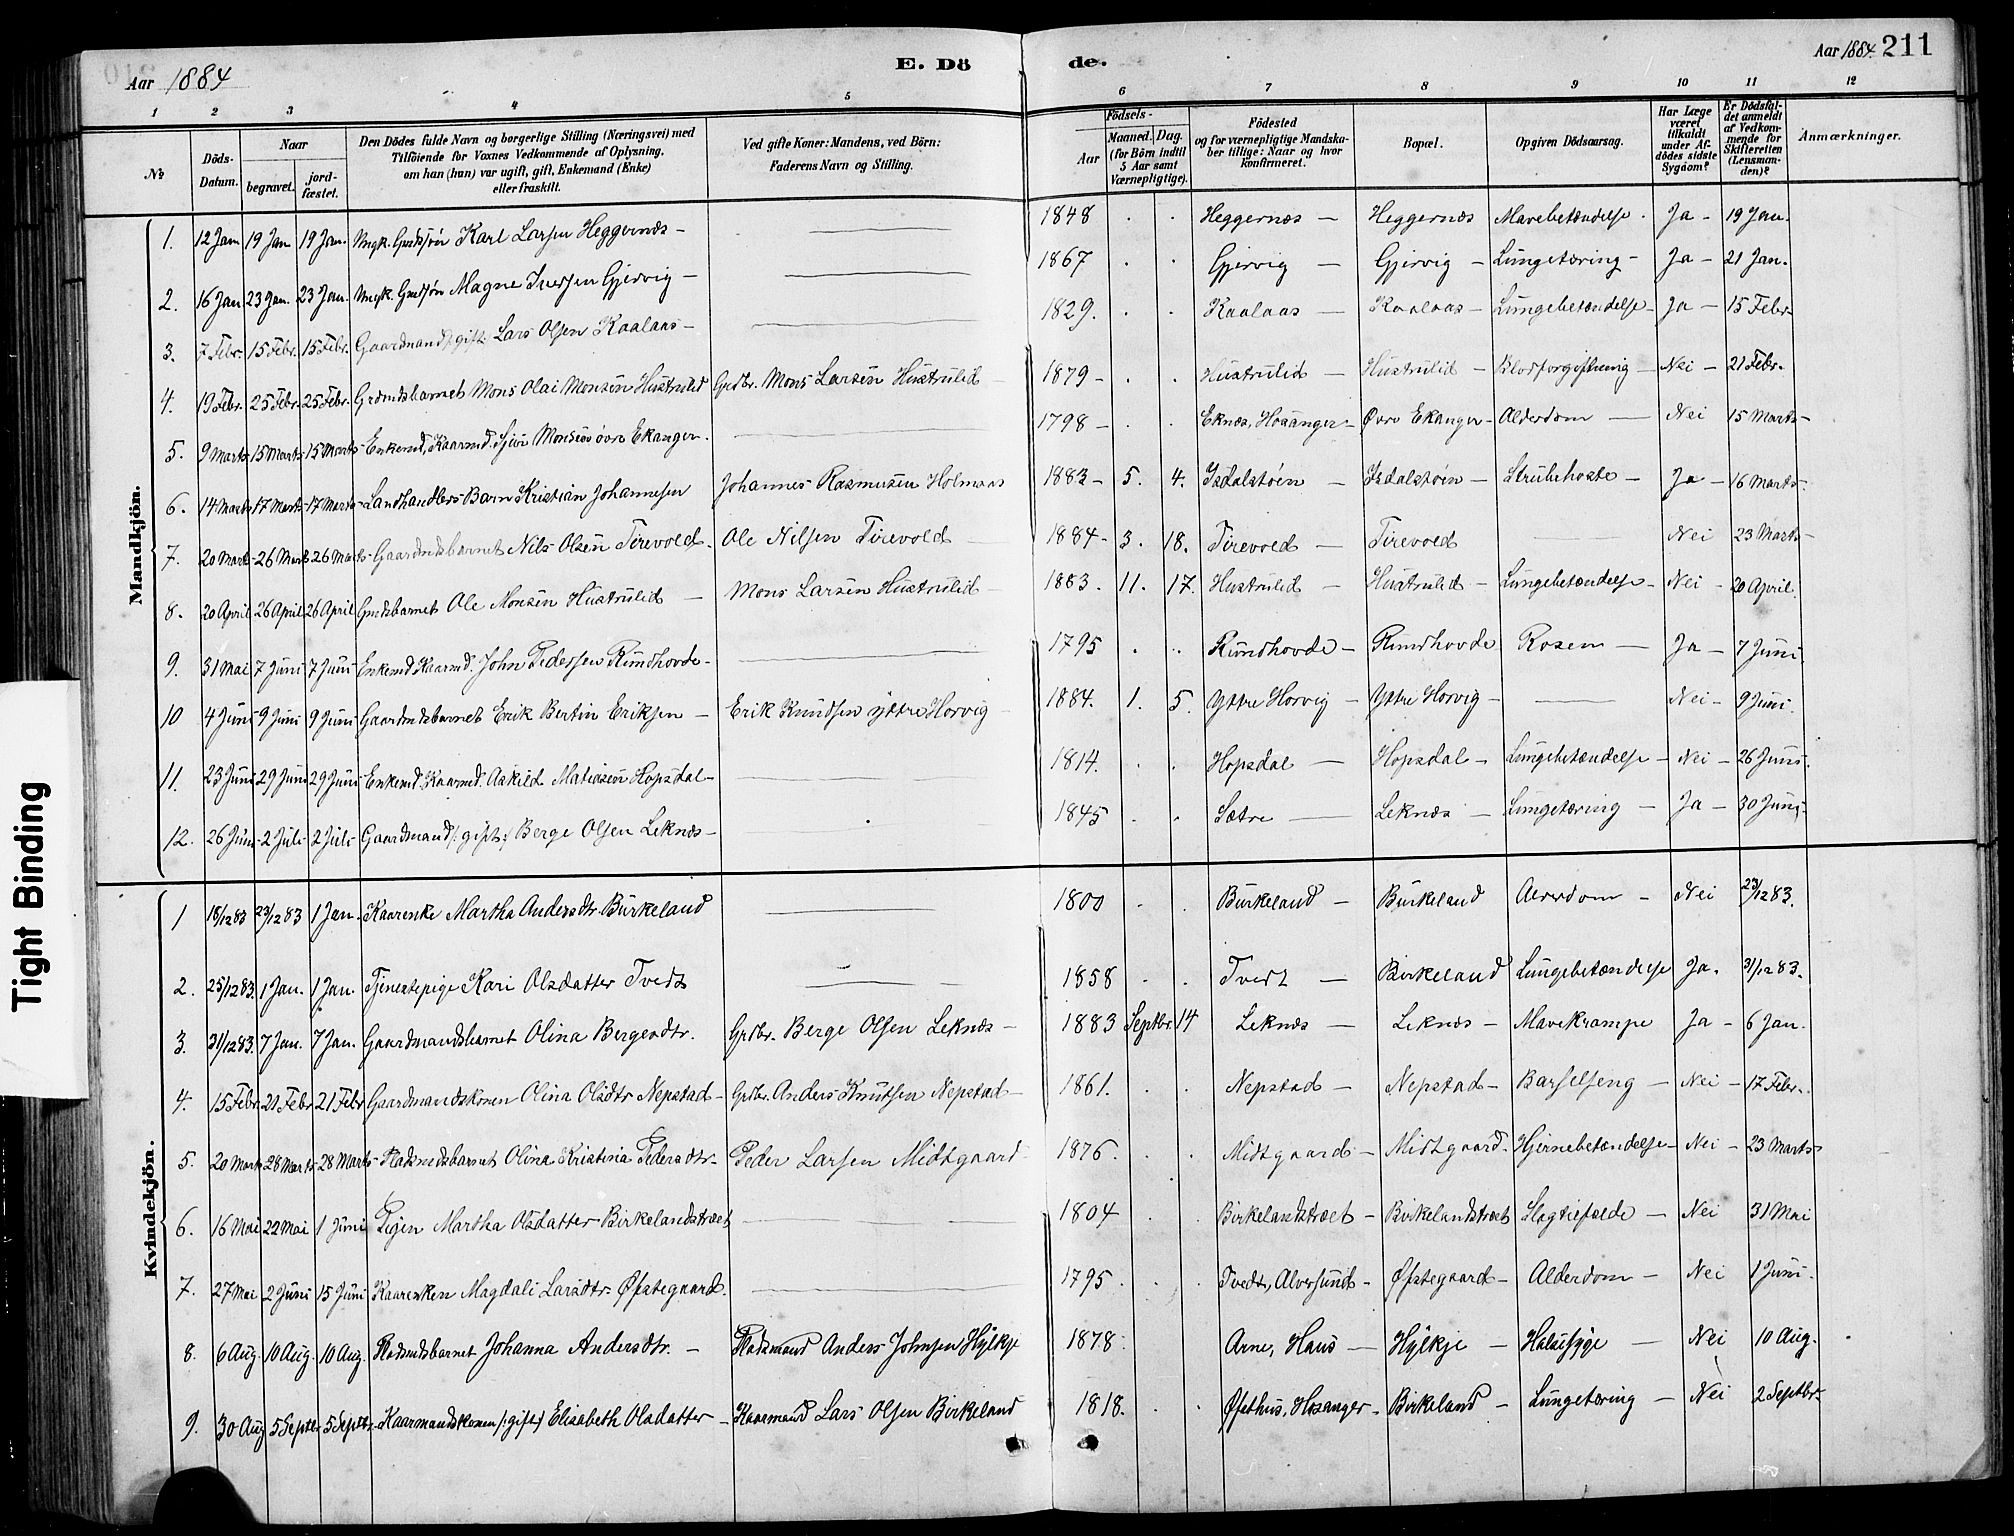 Aar 1884
E. Dö
de.
Aar 1884. 211
1 2 3 4 5 6 7 8 9 10 11 12
No
Döds-Datum.
Naar
begravet.
jord-fæstet.
Den Dödes fulde Navn og borgerlige Stilling (Næringsvei) med
Tilföiende for Voxnes Vedkommende af Oplysning,
om han (hun) var ugift, gift, Enkemand (Enke)
eller fraskilt.
Ved gifte Koner: Mandens, ved Börn:
Faderens Navn og Stilling.
Födsels-
Aar
Maaned. Dag.
(for Börn indtil
5 Aar samt
Værnepligtige).
Födested
og for værnepligtige Mandska-
ber tillige: Naar og hvor
konfirmeret.
Bopæl.
Opgiven Dödsaarsag.
Har Læge
været
tilkaldt
under Af-
dödes sidste
Sygdom?
Er Dödsfal-
det anmeldt
af Vedkom-
mende for
Skifteretten
(Lensman-
den)?
Anmærkninger.
Mandkjön.
1. 12 Jan 19 Jan 19 Jan. Ungk. Gaardsøn Karl Larsen Heggernæs - 1848 Heggernæs - Heggernæs Mavebetændelse. Ja - 19 Jan.
2. 16 Jan 23 Jan. 23 Jan. Ungk. Grdsøn Magne Iversen Gjervig - 1867 Gjervig - Gjervig - Lungetæring - Ja - 21 Jan.
3. 7 Febr. 15 Febr. 15 Febr. Gaardmand /: gift :/ Lars Olsen Kaalaas - 1829. Kaalaas - Kaalaas - Lungebetændelse - Ja - 15 Febr.
4. 19 Febr. 25 Febr. 25 Febr. Grdmdsbarnet Mons Olai Monsen Hustrulid Grdbr. Mons Larsen Hustrulid 1879 - Hustrulid - Hustrulid - Blodforgiftning - Nei - 21 Febr.
5. 9 Marts 15 Marts 15 Marts Enkemd, Kaarmd. Sjur Monsen øvre Ekanger. 1798 - Eknæs, Hosanger - Øvre Ekanger - Alderdom - Nei 15 Marts -
6. 14 Marts 17 Marts 17 Marts Landhandlers Barn Kristian Johannesen Johannes Rasmusen Holmaas 1883 - 5. 4. Isdalstøen - Isdalstøen - Strubehoste - Ja - 16 Marts -
7. 20 Marts 26 Marts 26 Marts Gaardmdsbarnet Nils Olsen Tirevold. Ole Nilsen Tirevold 1884 - 3. 18. Tirevold - Tirevold Nei 23 Marts -
8. 20 April 26 April 26 April Grdsbarnet Ole Monsen Hustrulid - Mons Larsen Hustrulid - 1883. 11. 17. Hustrulid - Hustrulid - Lungebetændelse - Nei - 20 April.
9. 31 Mai 7 Juni 7 Juni Enkemd Kaarmd. John Pedersen Rundhovde - 1795 Rundhovde - Rundhovde Rosen - Ja - 7 Juni
10 4 Juni 9 Juni 9 Juni Gaardmdsbarnet Erik Bertin Eriksen - Erik Knudsen ÿttre Horvig - 1884. 1. 5. Yttre Horvig - Yttre Horvig - Nei - 9 Juni.
11. 23 Juni 29 Juni 29 Juni Enkemd. Kaarmd. Askild Matiasen Hopsdal - 1814. Hopsdal - Hopsdal - Lungebetændelse - Nei - 26 Juni.
12. 26 Juni 2 Juli 2 Juli Gaardmand /: gift :/ Berge Olsen Leknæs - 1845 Sætre - Leknæs - Lungetæring - Ja - 30 Juni
Kvindekjön.
1 18/12 83 23/12 83 1 Jan. Kaarenke Martha Andersdtr. Birkeland 1800 Birkeland - Birkeland Alderdom - Nei 23/12 83.
2. 25/12 83. 1 Jan. 1 Jan. Tjenestepige Kari Olsdatter Tvedt 1858 Tvedt - Birkeland Lungebetændelse Ja. 31/12 83.
3. 31/12 83. 7 Jan. 7 Jan. Gaardmandsbarnet Olina Bergesdtr. Grdbr. Berge Olsen Leknæs - 1883 Septbr. 14 Leknæs - Leknæs - Mavekrampe Ja - 6 Jan.
4. 15 Febr. 21 Febr 21 Febr Gaardmandskonen Olina Olsdtr Nepstad - Grdbr. Anders Knutsen Nepstad - 1861. Nepstad - Nepstad - Barselseng - Nei - 17 Febr.
5. 20 Marts 28 Marts 28 Marts Pladsmdsbarnet Olina Kristina Pedersdtr. Peder Larsen Midtgaard 1876. Midtgaard - Midtgaard. Hjernebetændelse - Nei - 23 Marts -
6. 16 Mai 22 Mai 1 Juni Pigen Martha Olsdatter Birkelandstræet 1804 Birkelandstræet - Birkelandstræet Slagtilfælde - Nei 31 Mai
7. 27 Mai 2 Juni 15 Juni Kaarenken Magdali Larsdtr. Øfstegaard. 1795 Tvedt, Alversund - Øfstegaard - Alderdom - Nei 1 Juni.
8. 6 Aug. 10 Aug. 10 Aug. Pladsmdsbarnet Johanna Andersdtr. - Pladsmand Anders Johnsen Hÿlkje 1878. Arne, Haus - Hÿlkje - Halssyge - Nei 10 Aug.
9. 30 Aug 5 Septbr 5 Septbr. Kaarmandskonen /: gift :/ Elisabeth Olsdatter - Kaarmand Lars Olsen Birkeland 1818. Øfsthus, Hosanger - Birkeland - Lungetæring - Nei 2 Septbr -
Tight Binding